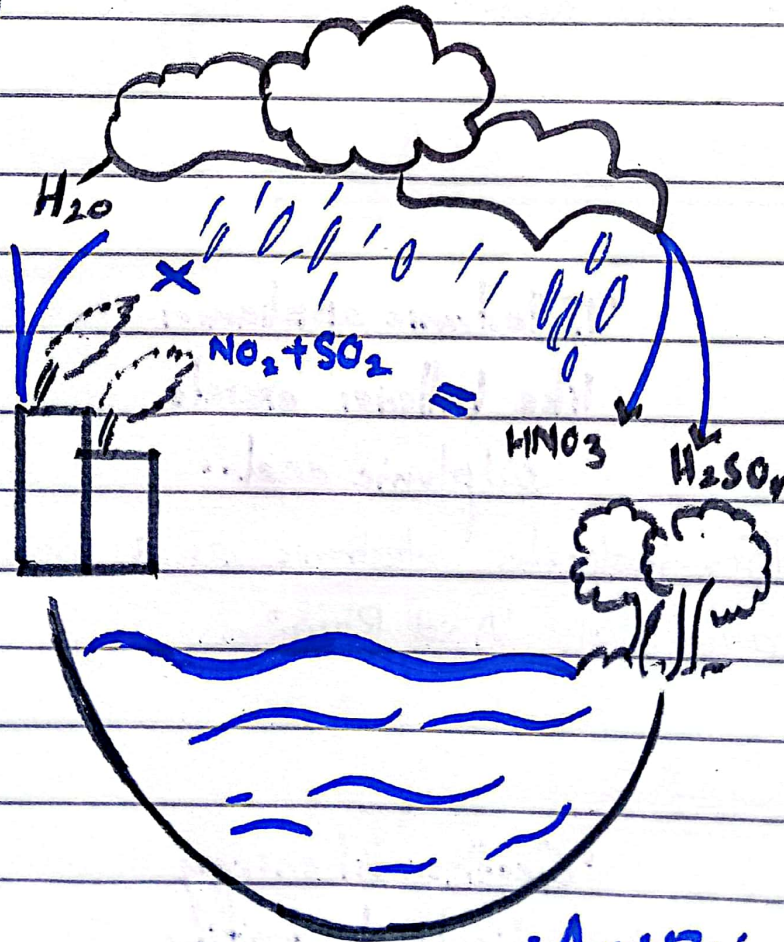 H2O
× NO2+SO2 =
HNO3
H2SO4